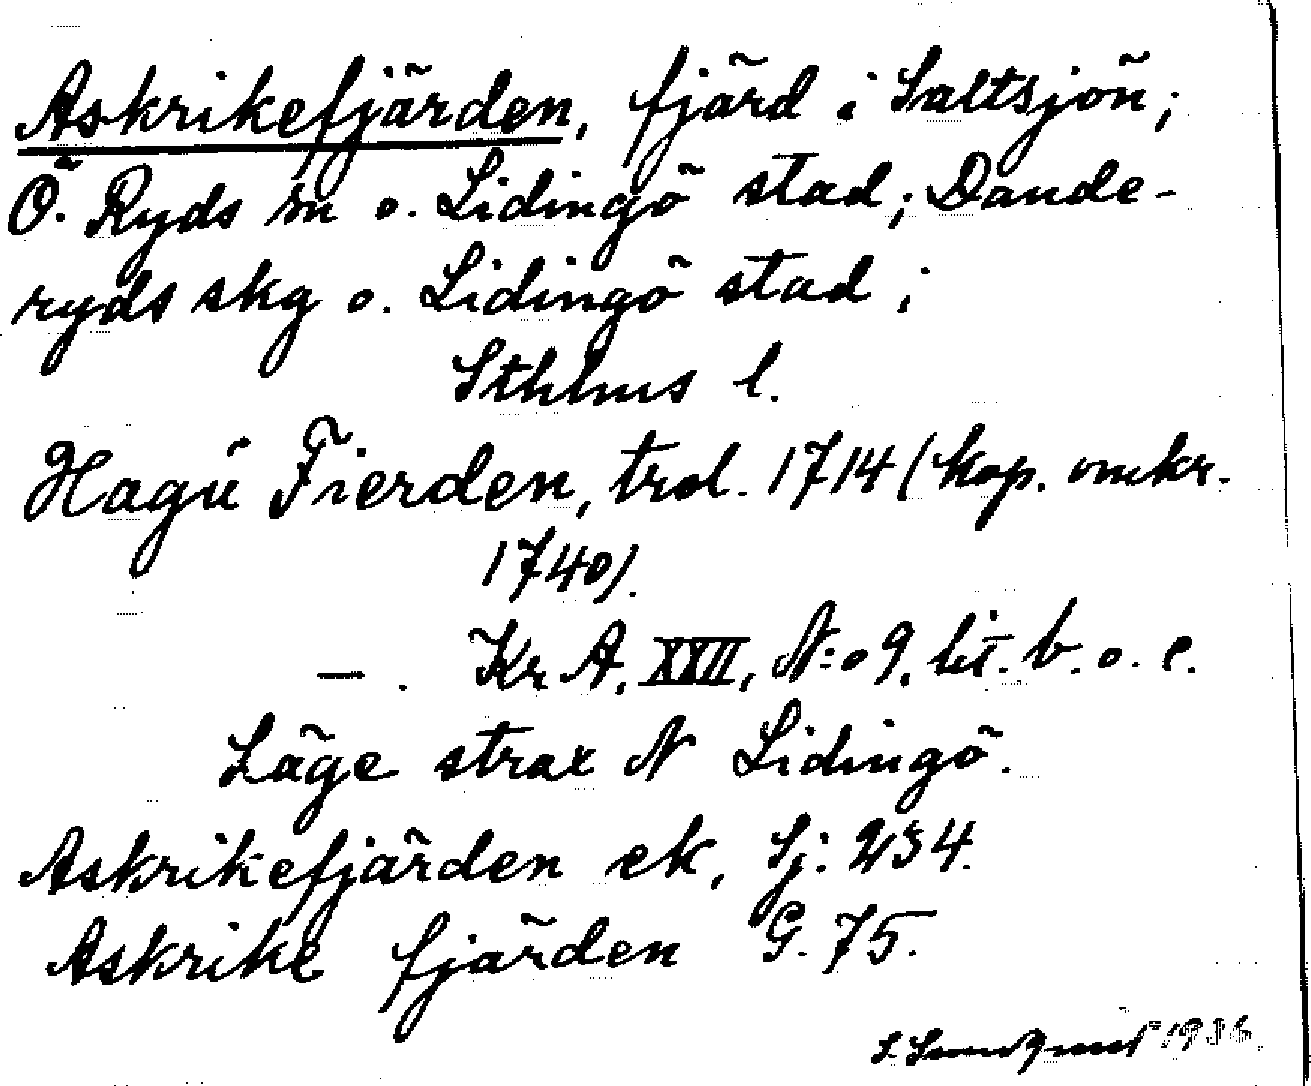 Askrikefjärden, fjärd i Saltsjön;
Ö. Ryds sn o. Lidingö stad; Dande-
ryds skg o. Lidingö stad;
Sthlms l.
Hagu Fierden, trol. 1714 (kop. omkr.
1740).
— . Kr A, XXII, N:o 9. lit. b. o. c.
Läge strax N Lidingö.
Askrikefjärden ek, Sj: 234.
Askrike fjärden G. 75.
S. Sundqvist 1936